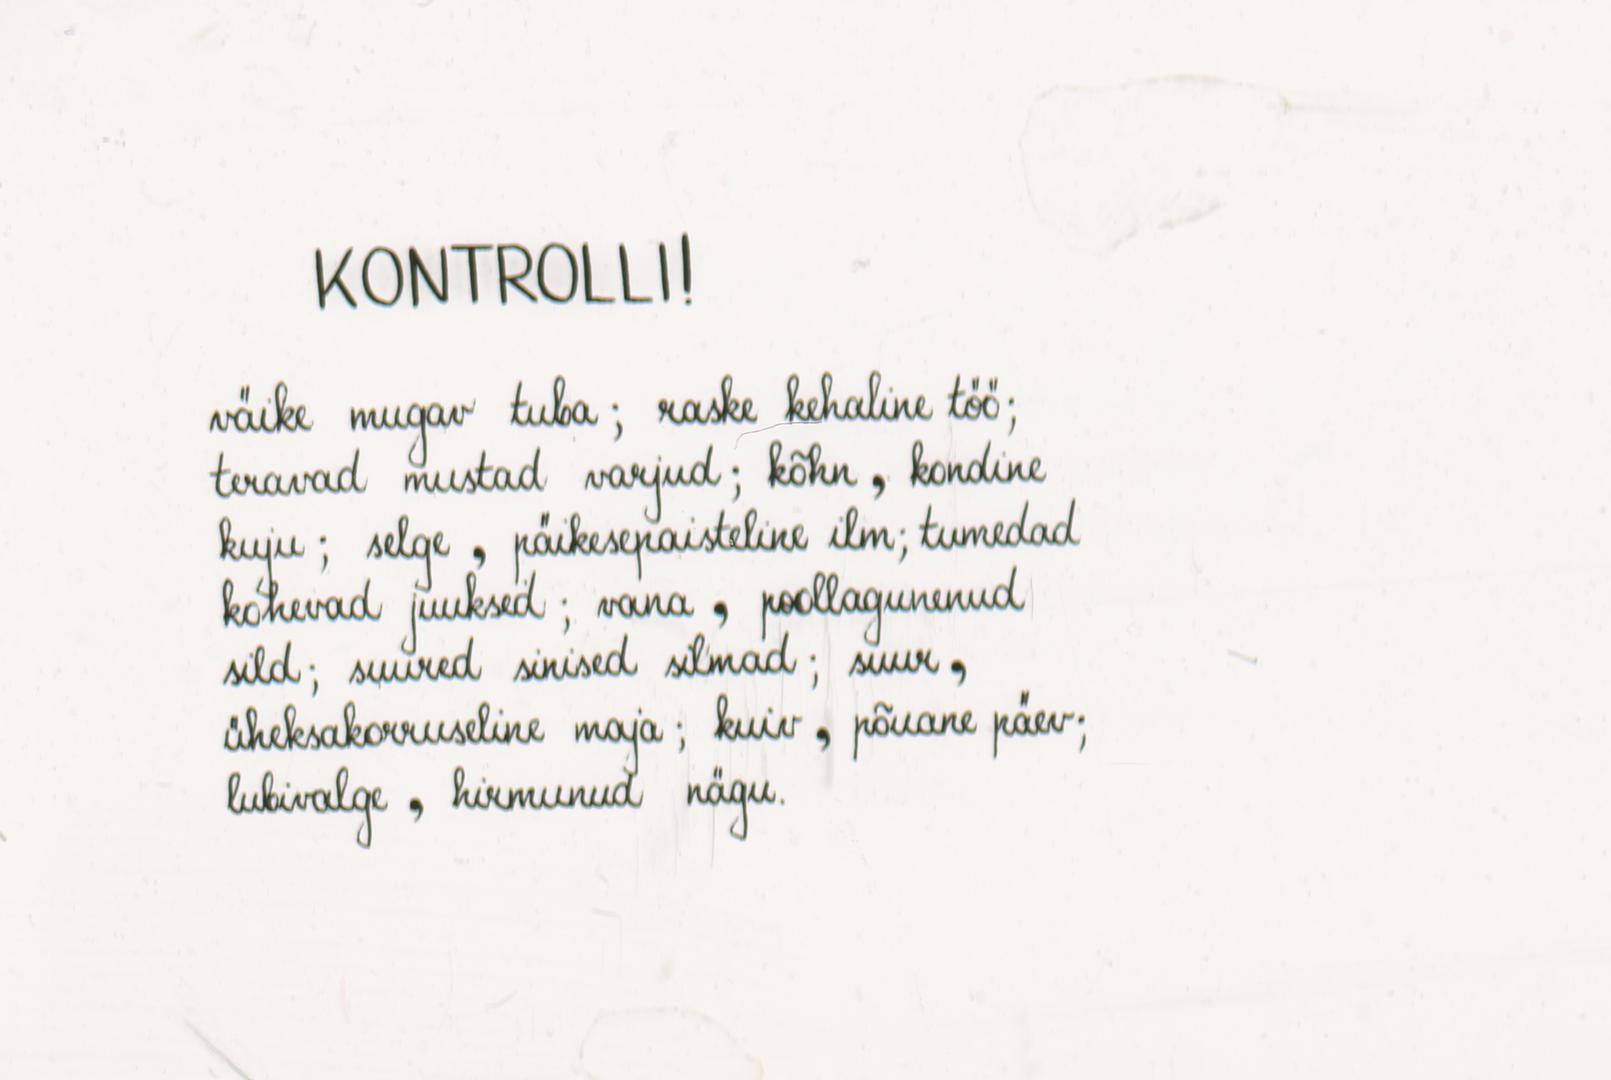 KONTROLLI!
väike mugav tuba; raske kehaline töö;
teravad mustad varjud; kõhn, kondine
kuju; selge, päikesepaisteline ilm; tumedad
kohevad juuksed; vana, poollagunenud
sild; suured sinised silmad; suur,
üheksakorruseline maja; kuiv, põuane päev;
lubivalge, hirmunud nägu.